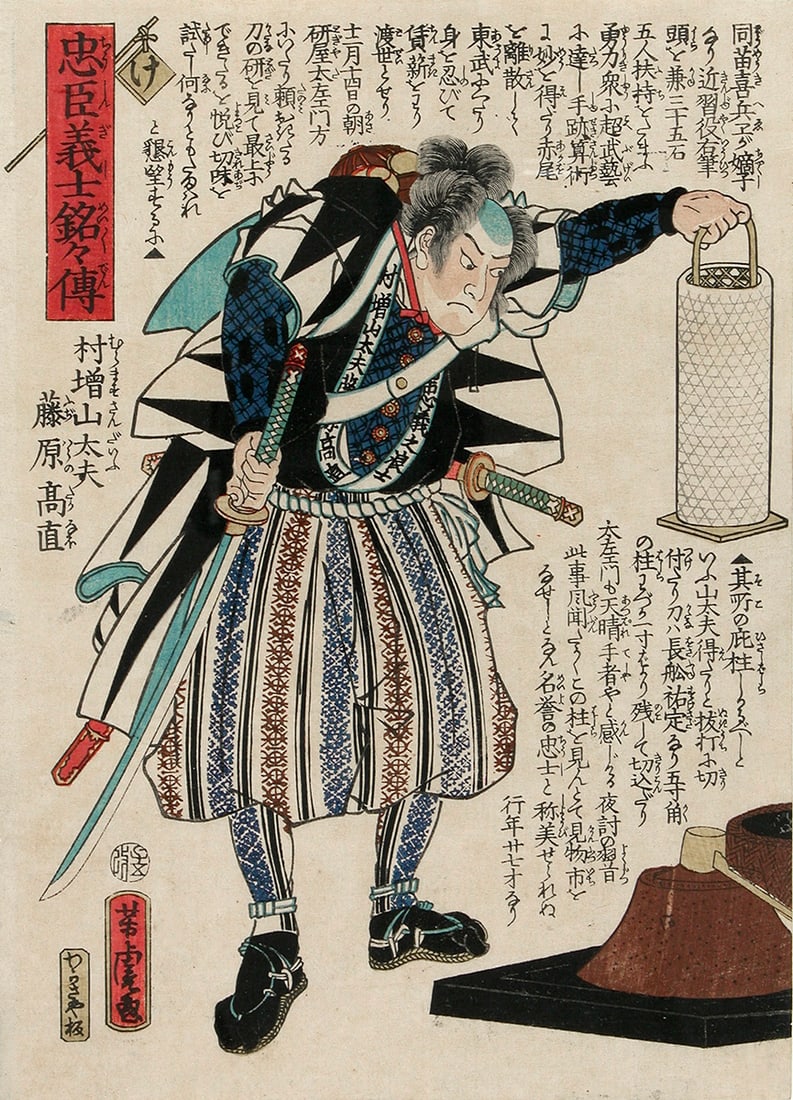 忠臣義士銘々傳
け
村増山太夫
藤原髙直
同苗喜兵ヱが嫡子
なり近習役右筆
頭を兼三十五石
五人扶持をたまふ
勇力衆に超武藝
に達し手跡算術
に妙を得たり赤尾
を離散して
東武に下り
身を忍びて
賃薪をわり
渡世とせり
十二月十四日の朝
研屋太左エ門方
にいたり頼おきたる
刀の研を見て最上に
できたると悦び切味を
試たし何なりともたまはれ
と懇望するに▲
▲其所の庇柱
いふ山太夫得たりと抜打に切
付たり刀ハ長舩祐定なり五寸角
の柱にて一寸ばかり残して切込だり
太左エ門も天晴手者やと感じる夜討の翌日
此事風聞たかくこの柱を見んとて見物市を
なせしとなん名誉の忠士と称美せられぬ
行年廿七才なり
村増山太夫
忠義之臣士
髙直
芳虎画
板